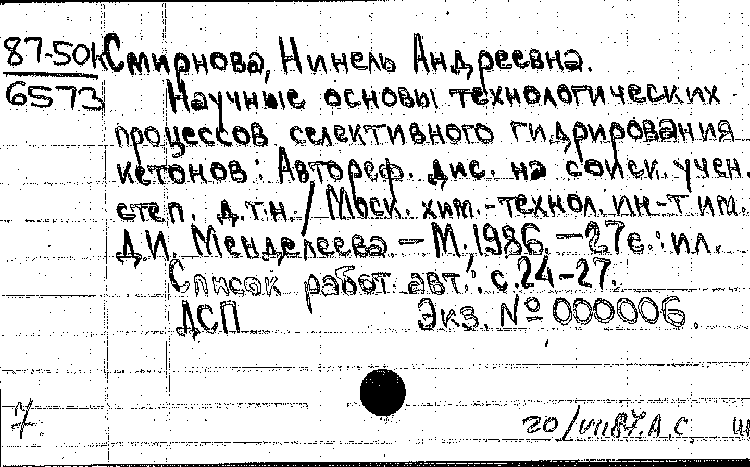 87-50к Смирнова, Нинель Андреевна.
6573 Научные основы технологических
процессов селективного гидрирования
кетонов: Автореф. дис. на соиск. учен.
степ. д.т.н. / Моск. хим.-технол. ин-т им.
Д.И. Менделеева. - М., 1986. - 27с.: ил.
Список работ авт.: с.24-27.
ДСП Экз. № 000006.
20/VII87. А.С.